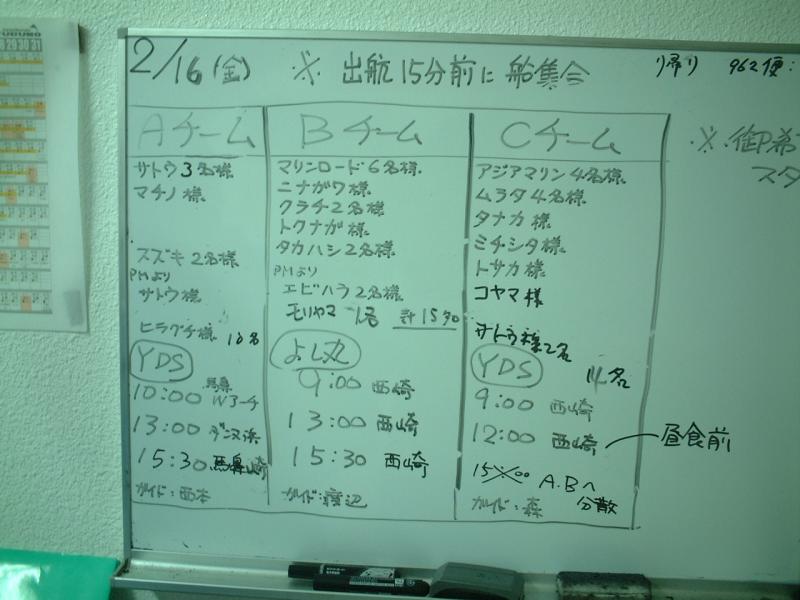 2/16(金) ※ 出航15分前に船集合
帰り 962便:
※ 御希
スタ
Aチーム
サトウ3名様
マチノ様
スズキ2名様
PMより
サトウ様
ヒラグチ様 10名
YDS
10:00 馬鼻 Wアーチ
13:00 ダンヌ浜
15:30 馬鼻崎
ガイド:西本
Bチーム
マリンロード6名様
ニナガワ様
クラチ2名様
トクナガ様
タカハシ2名様
PMより
エビハラ2名様
モリヤマ 1名 計15名
よし丸
9:00 西崎
13:00 西崎
15:30 西崎
ガイド:渡辺
Cチーム
アジアマリン4名様
ムラタ4名様
タナカ様
ミチシタ様
トサカ様
コヤマ様
サトウ様2名
14名
YDS
9:00 西崎
12:00 西崎 昼食前
15:00 A.Bへ
分散
ガイド:森
29 30 31